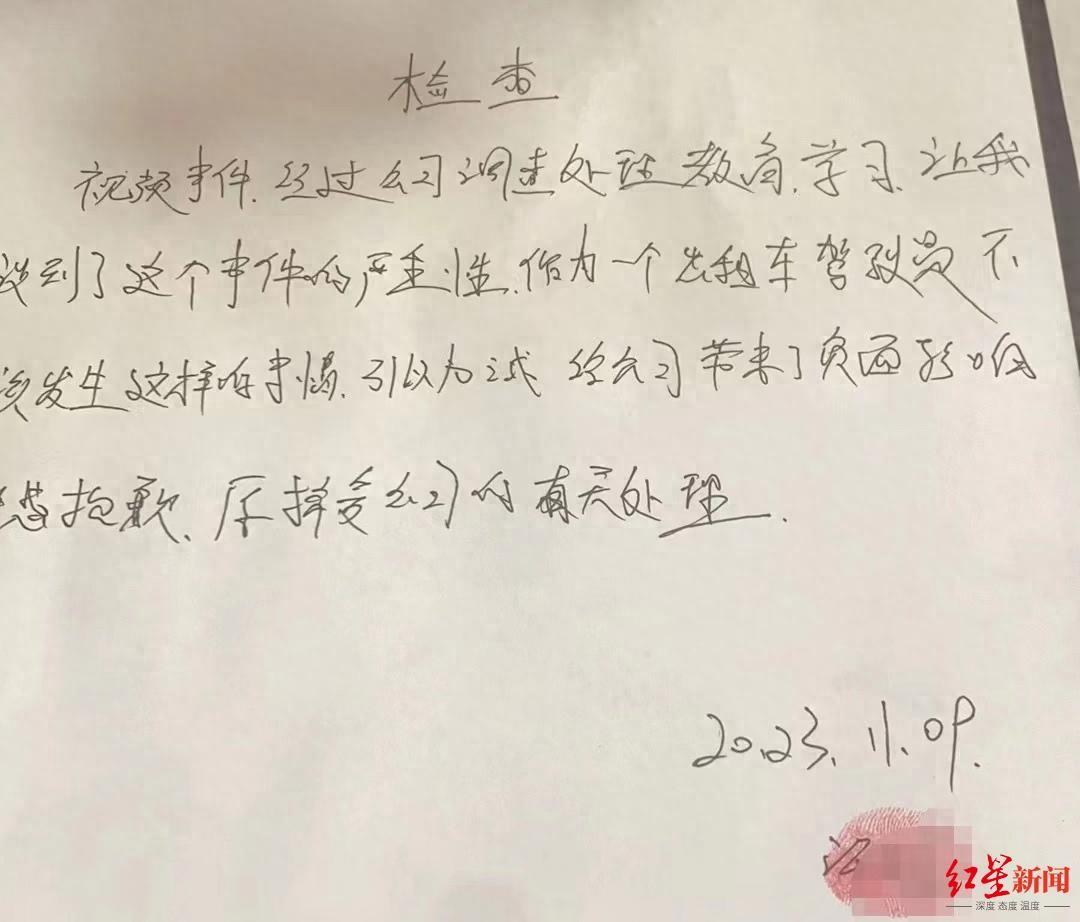 检查
视频事件.经过公司调查处理教育.学习.让我
识到了这个事件的严重性.作为一个出租车驾驶员不
该发生这样的事情.引以为戒 给公司带来了负面影响
感抱歉、愿接受公司的有关处理.
2023.11.09.
红星新闻
深度 态度 温度